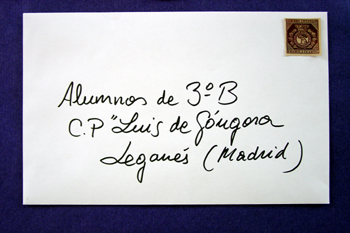 Alumnos de 3º B
C.P "Luis de Góngora
Leganés (Madrid)